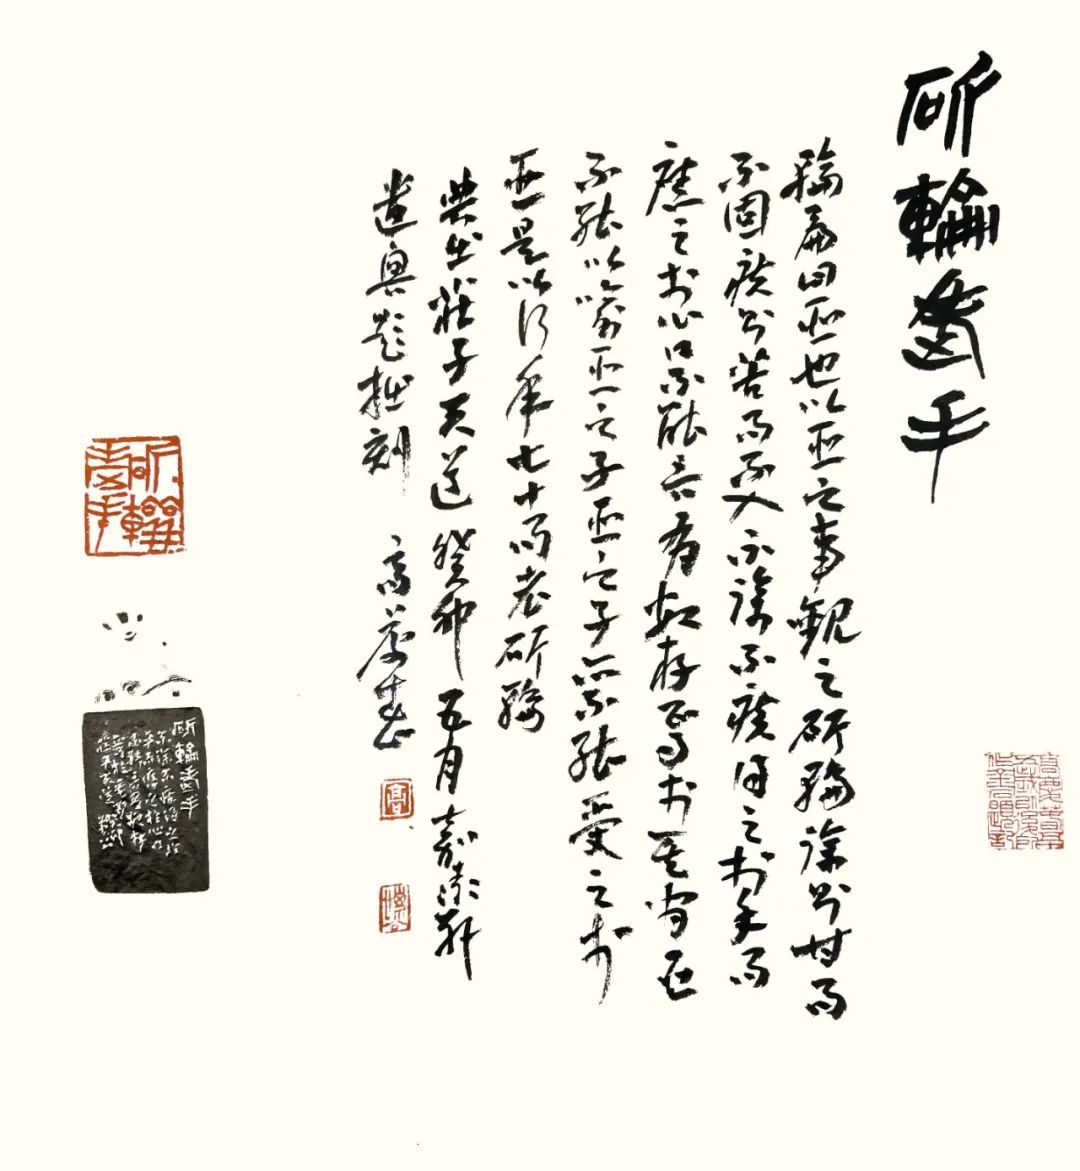 斫輪老手
輪扁曰臣也以臣之事觀之斫輪徐則甘而
不固疾則苦而不入不徐不疾得之於手而
應之於心口不能言有數存焉於其間臣
不能以喻臣之子臣之子亦不能受之於
臣是以行年七十而老斫輪
典出莊子天道 癸卯五月
遣興題拙刻 高慶春
高
斫輪老手
斫輪老手